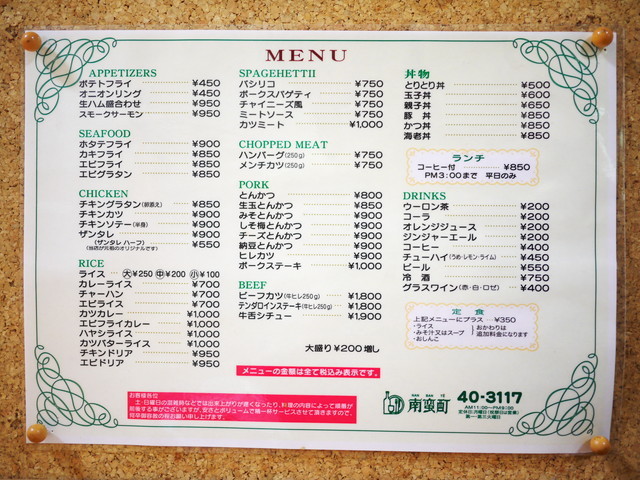 MENU
APPETIZERS
ポテトフライ ¥450
オニオンリング ¥450
生ハム盛合わせ ¥950
スモークサーモン ¥950
SEAFOOD
ホタテフライ ¥900
カキフライ ¥850
エビフライ ¥850
エビグラタン ¥850
CHICKEN
チキングラタン(御飯添え) ¥850
チキンカツ ¥900
チキンソテー(半身) ¥900
ザンタレ ¥900
(ザンタレ ハーフ) ¥550
(当店が元祖のオリジナルです)
RICE
ライス 大¥250 中¥200 小¥100
カレーライス ¥700
チャーハン ¥700
エビライス ¥700
カツカレー ¥1,000
エビフライカレー ¥1,000
ハヤシライス ¥1,000
カツバターライス ¥1,000
チキンドリア ¥950
エビドリア ¥950
SPAGEHETTII
バシリコ ¥750
ポークスパゲティ ¥750
チャイニーズ風 ¥750
ミートソース ¥750
カツミート ¥1,000
CHOPPED MEAT
ハンバーグ(250g) ¥750
メンチカツ(250g) ¥750
PORK
とんかつ ¥800
生玉とんかつ ¥850
みそとんかつ ¥900
しそ梅とんかつ ¥900
チーズとんかつ ¥900
納豆とんかつ ¥900
ヒレカツ ¥900
ポークステーキ ¥1,000
BEEF
ビーフカツ(牛ヒレ250g) ¥1,800
テンダロインステーキ(牛ヒレ250g) ¥1,800
牛舌シチュー ¥1,900
大盛り¥200増し
メニューの金額は全て税込み表示です。
丼物
とりとり丼 ¥500
玉子丼 ¥600
親子丼 ¥650
豚丼 ¥850
かつ丼 ¥850
海老丼 ¥850
ランチ
コーヒー付 ¥850
PM3:00まで 平日のみ
DRINKS
ウーロン茶 ¥200
コーラ ¥200
オレンジジュース ¥200
ジンジャーエール ¥200
コーヒー ¥400
チューハイ(うめ・レモン・ライム) ¥450
ビール ¥550
冷酒 ¥750
グラスワイン(赤・白・ロゼ) ¥400
定食
上記メニューにプラス ¥350
・ライス
・みそ汁又はスープ
・おしんこ
おかわりは
追加料金になります
お客様各位
土・日曜日の混雑時などでは出来上がりが遅くなったり、料理の内容によって順番が
前後する事がございますが、安さとボリュームで精一杯サービスさせて頂きますので、
NAN BAN TEI
南蛮町
40-3117
AM11:00〜PM9:00